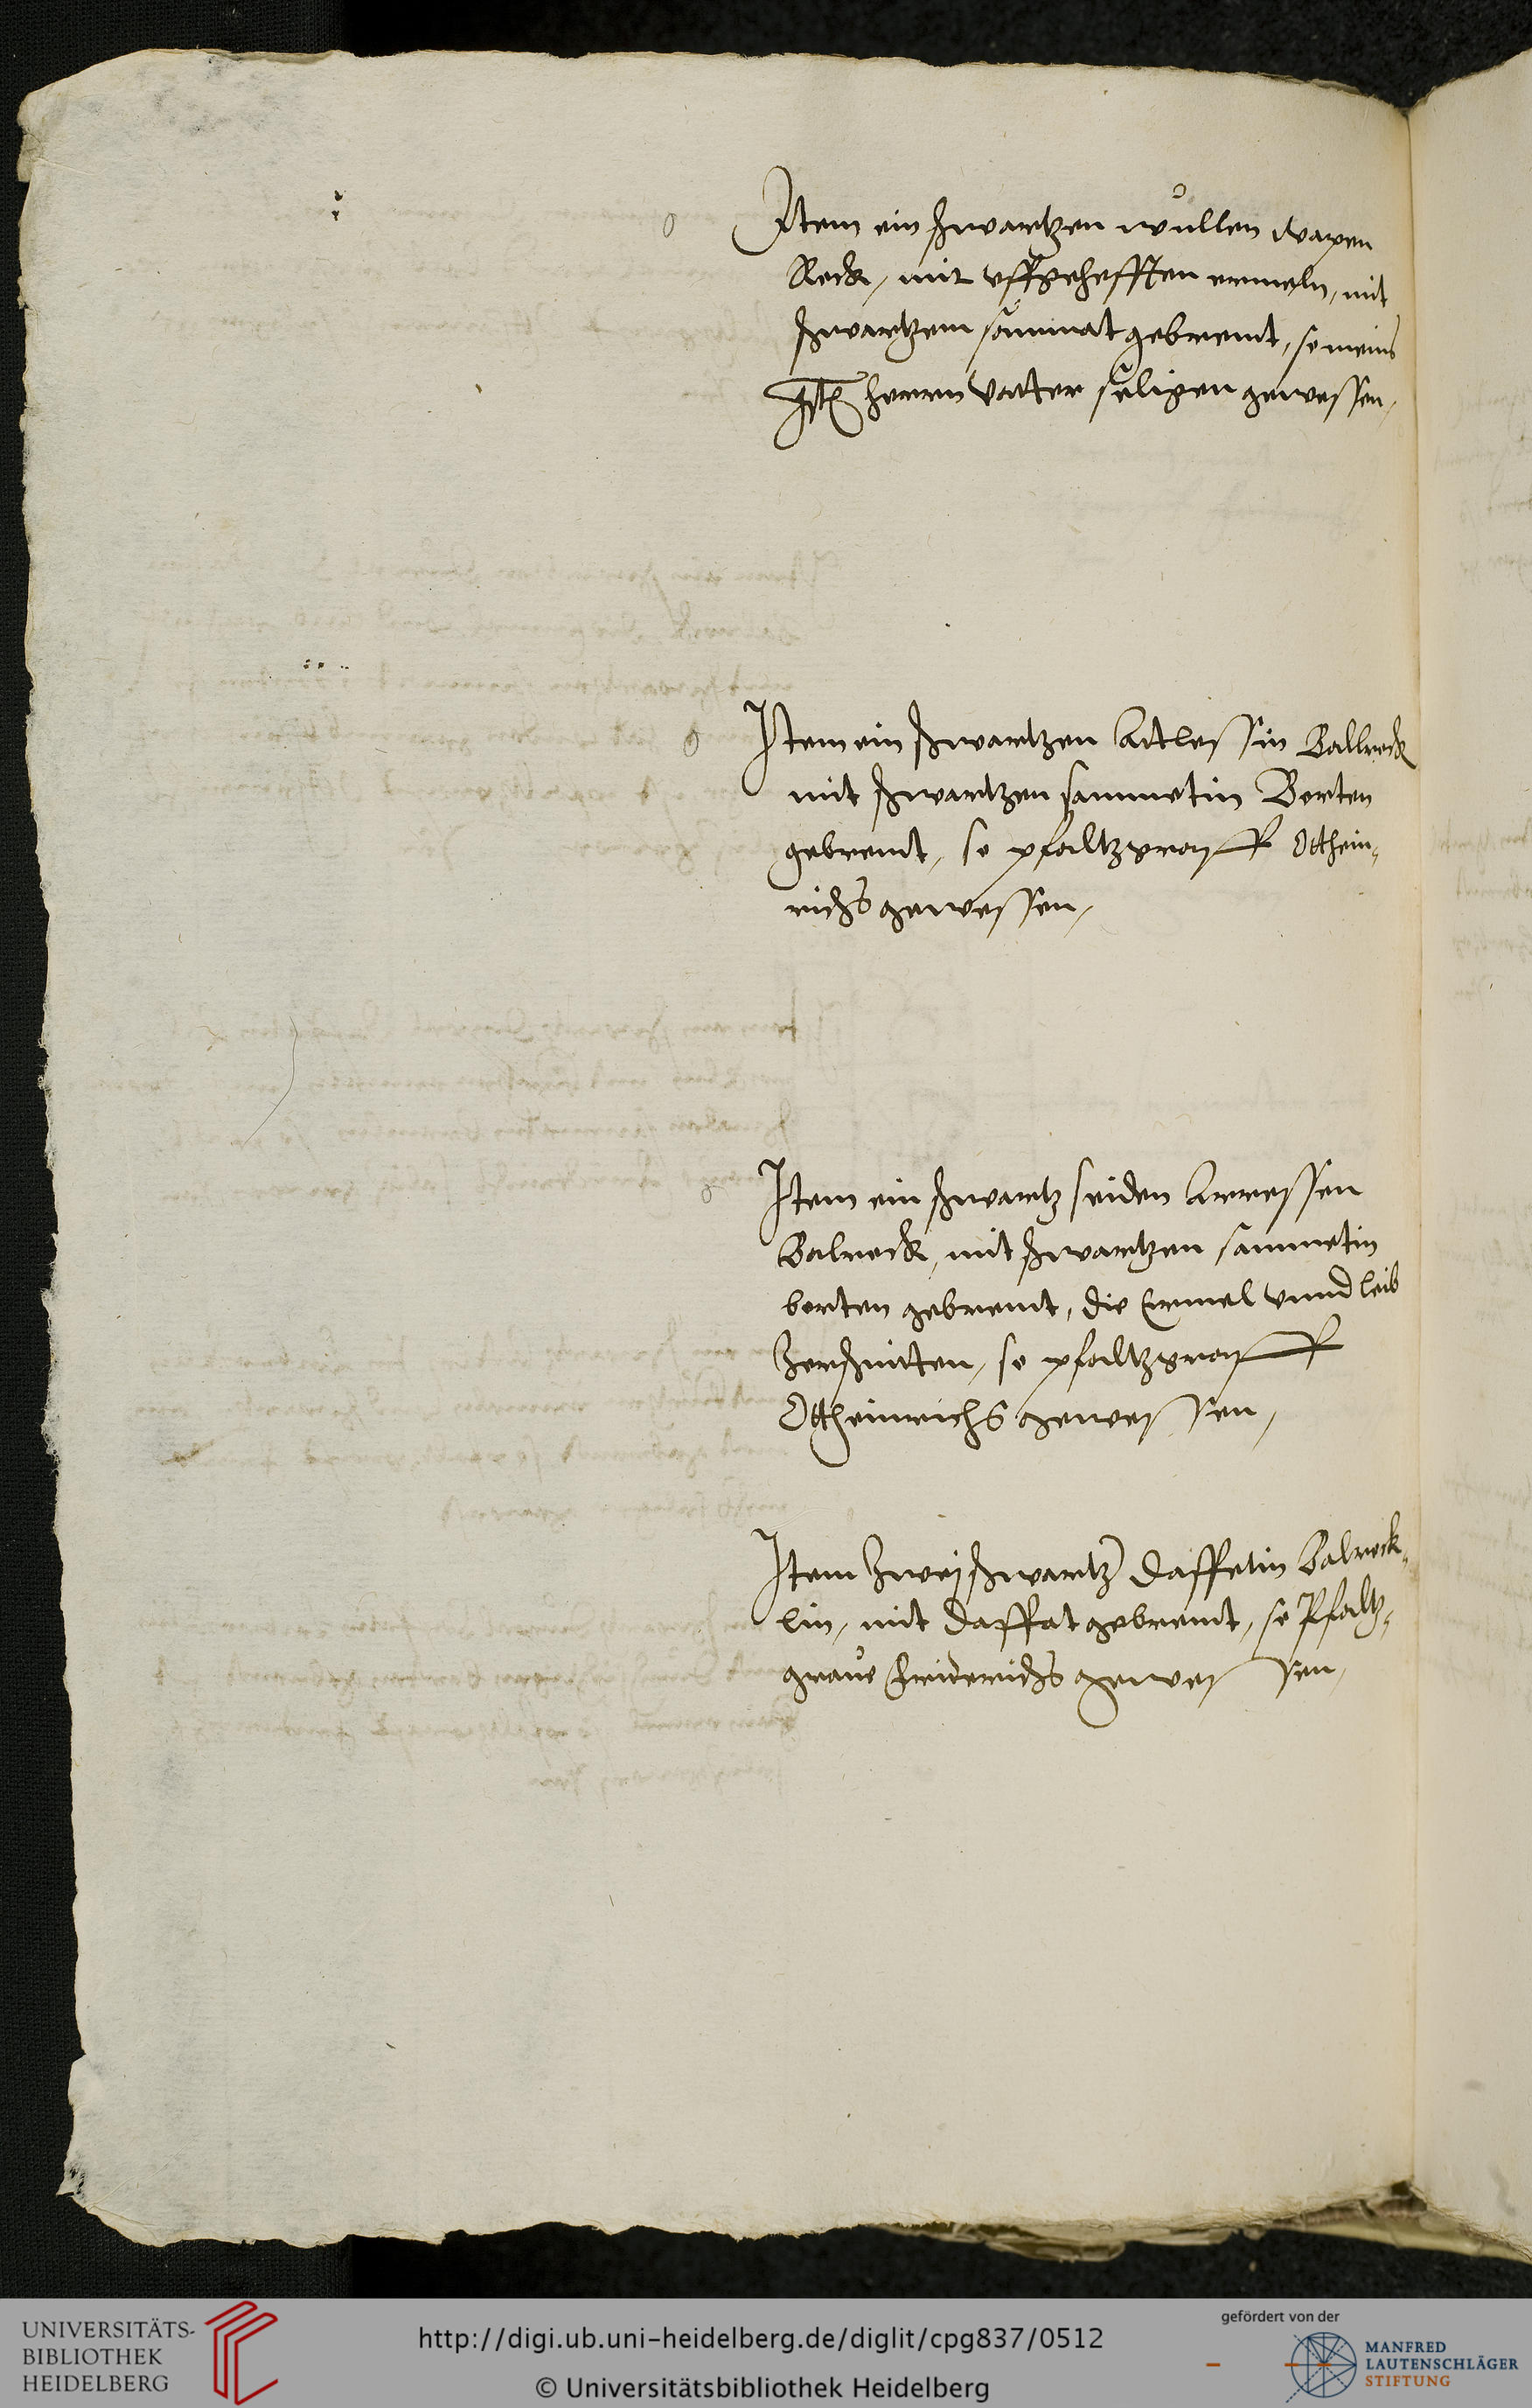 Item ein schwartzen wůllen wapen
Rock, mit vffgehefften ermeln, mit
schwartzem sammat gebremt, so meins
herrn Vatter säligen gewessen,
Item ein schwartzen Atlessin Ballrock
mit schwartzen sammetin Borten
gebremt, so pfaltzgraff Otthein-
richs gewessen,
Item ein schwartz seiden Arressen
Balrock, mit schwartzen sammetin
borten gebremt, die Ermel vnnd leib
Zerschnitten, so pfaltzgraff
Ottheinrichs gewessen,
Item Zwej schwartz Daffetin Balrock-
lin, mit Daffat gebremt, so Pfaltz-
graue Friderichs gewessen,
UNIVERSITÄTS-
BIBLIOTHEK
HEIDELBERG
http://digi.ub.uni-heidelberg.de/diglit/cpg837/0512
© Universitätsbibliothek Heidelberg
gefördert von der
MANFRED
LAUTENSCHLÄGER
STIFTUNG